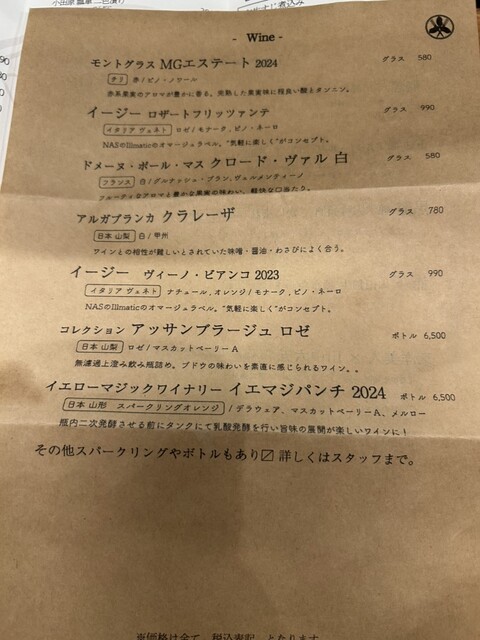 - Wine -
モントグラス MGエステート 2024 グラス 580
チリ 赤/ピノ・ノワール
赤系果実のアロマが豊かに香る、完熟した果実味に程良い酸とタンニン。
イージー ロザートフリッツァンテ グラス 990
イタリア ヴェネト ロゼ/モナーク、ピノ・ネーロ
NASのIllmaticのオマージュラベル。"気軽に楽しく"がコンセプト。
ドメーヌ・ポール・マス クロード・ヴァル 白 グラス 580
フランス 白/グルナッシュ・ブラン、ヴェルメンティーノ
フルーティなアロマと豊かな果実の味わい、軽快な口当たり。
アルガブランカ クラレーザ グラス 780
日本 山梨 白/甲州
ワインとの相性が難しいとされていた味噌・醤油・わさびによく合う。
イージー ヴィーノ・ビアンコ 2023 グラス 990
イタリア ヴェネト ナチュール、オレンジ/モナーク、ピノ・ネーロ
NASのIllmaticのオマージュラベル。"気軽に楽しく"がコンセプト。
コレクション アッサンブラージュ ロゼ ボトル 6,500
日本 山梨 ロゼ/マスカットベーリーA
無濾過上澄み飲み瓶詰め。ブドウの味わいを素直に感じられるワイン。。
イエローマジックワイナリー イエマジパンチ 2024 ボトル 6,500
日本 山形 スパークリングオレンジ /デラウェア、マスカットベーリーA、メルロー
瓶内二次発酵させる前にタンクにて乳酸発酵を行い旨味の展開が楽しいワインに!
その他スパークリングやボトルもあり〼 詳しくはスタッフまで。
※価格は全て、税込表記、となります